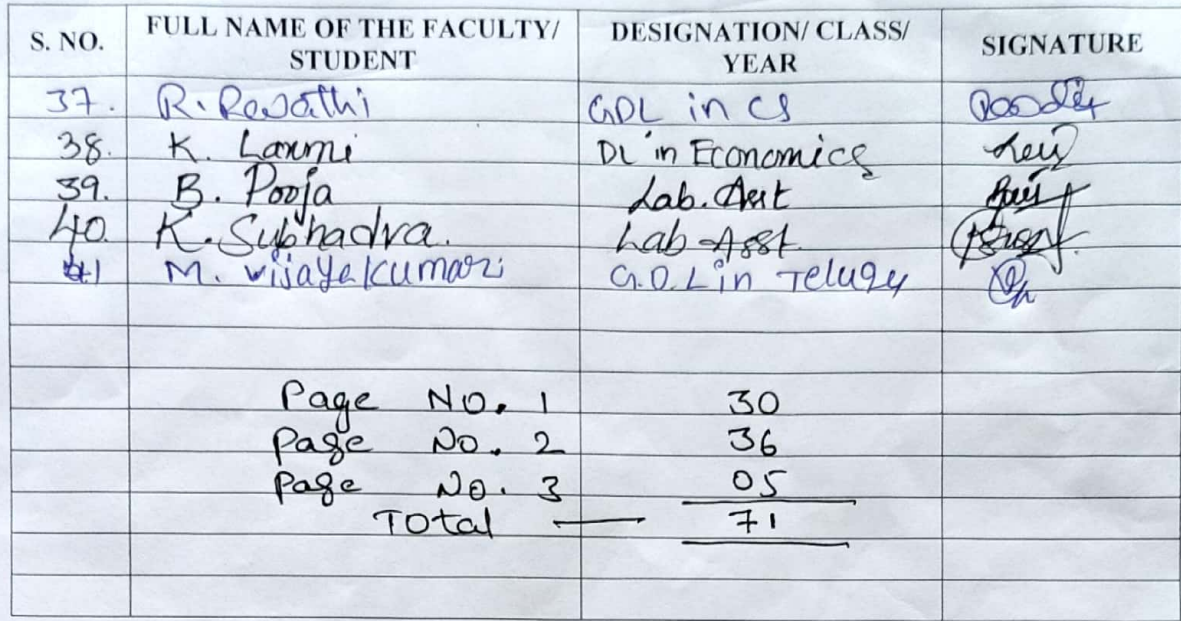 S. NO. FULL NAME OF THE FACULTY/ STUDENT DESIGNATION/ CLASS/ YEAR SIGNATURE
37. R. Revathi GDL in CS
38. K. Laxmi DL in Economics
39. B. Pooja Lab. Asst
40. K. Subhadra. Lab Asst.
41 M. vijaya kumari G.D.L in Telugu
Page No. 1 30
Page No. 2 36
Page No. 3 05
Total 71